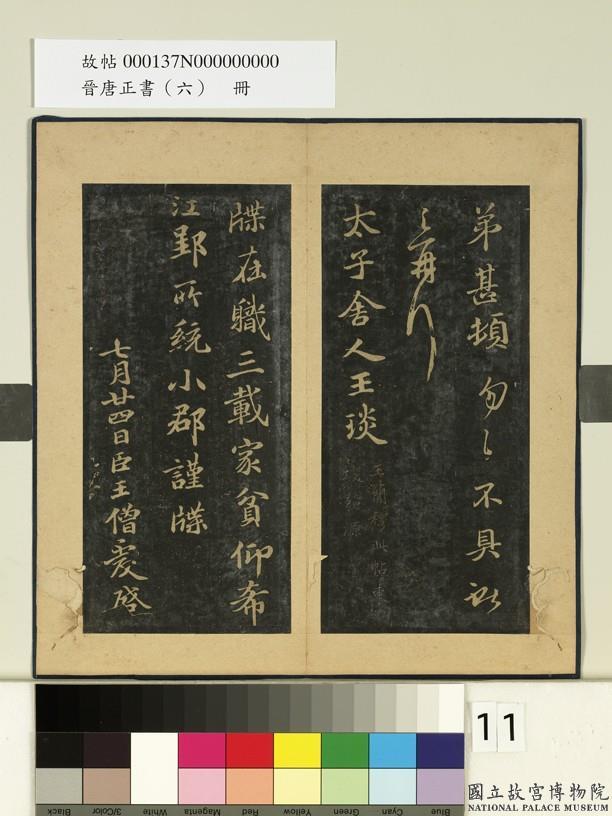 故帖 000137N000000000
晉唐正書（六） 冊
弟甚頓匆〻不具
〻
太子舍人王琰
此帖
牒在職三載家貧仰希
江郢所統小郡謹牒
七月廿四日臣王僧虔啓
11
Black
3/Color
White
Magenta
Red
Yellow
Green
Cyan
Blue
國立故宮博物院
NATIONAL PALACE MUSEUM